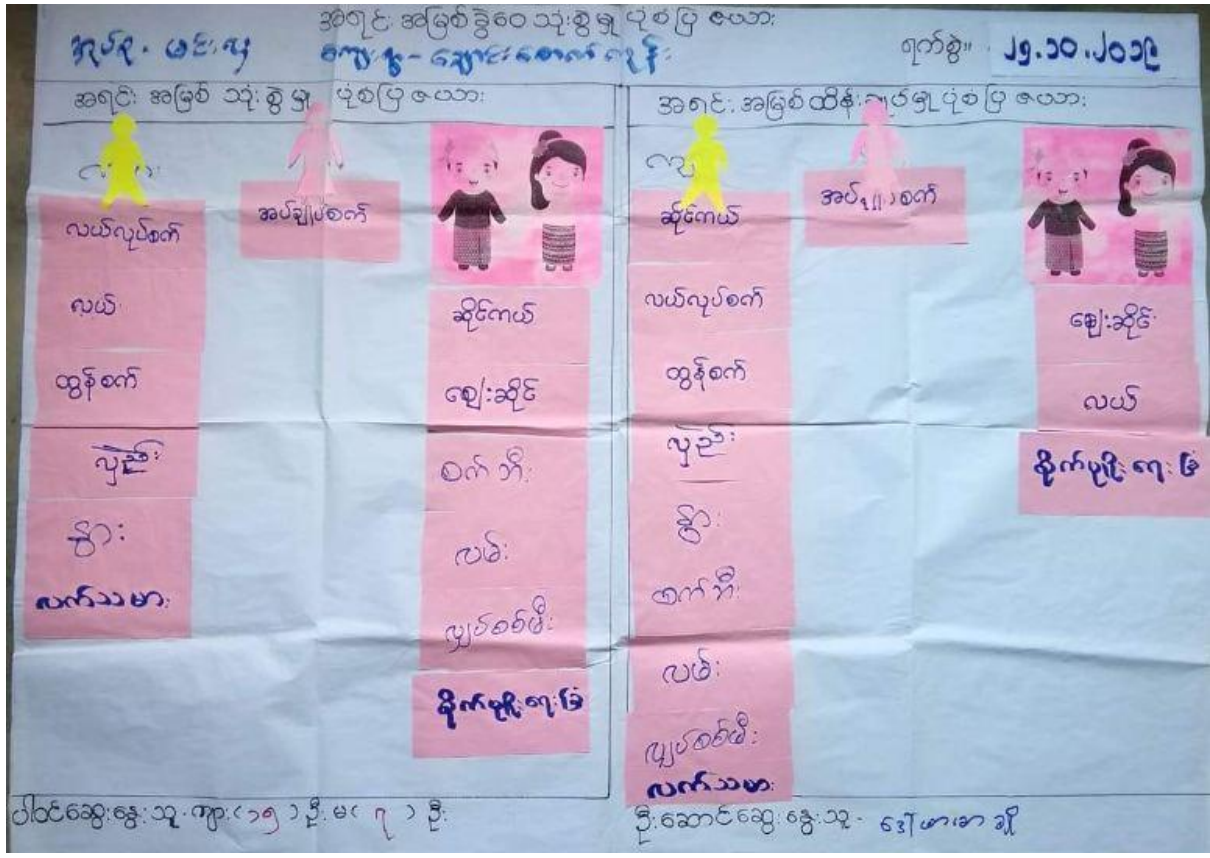 အရင်း အမြစ်ခွဲဝေ သုံးစွဲမှု ပုံစံပြ ဇယား
အုပ်စု - မင်းလှ
ကျေးရွာ - ချောင်းစောက်ကုန်း
ရက်စွဲ။ ၂၅.၁၀.၂၀၁၉
အရင်း အမြစ် သုံးစွဲမှု ပုံစံပြ ဇယား
လယ်လုပ်စက်
လယ်
ထွန်စက်
လှည်း
နွား
လက်သမား
အပ်ချုပ်စက်
ဆိုင်ကယ်
ဈေးဆိုင်
စက်ဘီး
လမ်း
လျှပ်စစ်မီး
စိုက်ပျိုးရေးခြံ
အရင်းအမြစ်ထိန်းချုပ်မှု ပုံစံပြ ဇယား
ဆိုင်ကယ်
လယ်လုပ်စက်
ထွန်စက်
လှည်း
နွား
စက်ဘီး
လမ်း
လျှပ်စစ်မီး
လက်သမား
ဈေးဆိုင်
လယ်
စိုက်ပျိုးရေးခြံ
ပါဝင်ဆွေးနွေးသူ - ကျား (၁၅) ဦး မ (၇) ဦး
ဦးဆောင်ဆွေးနွေးသူ - ဒေါ်